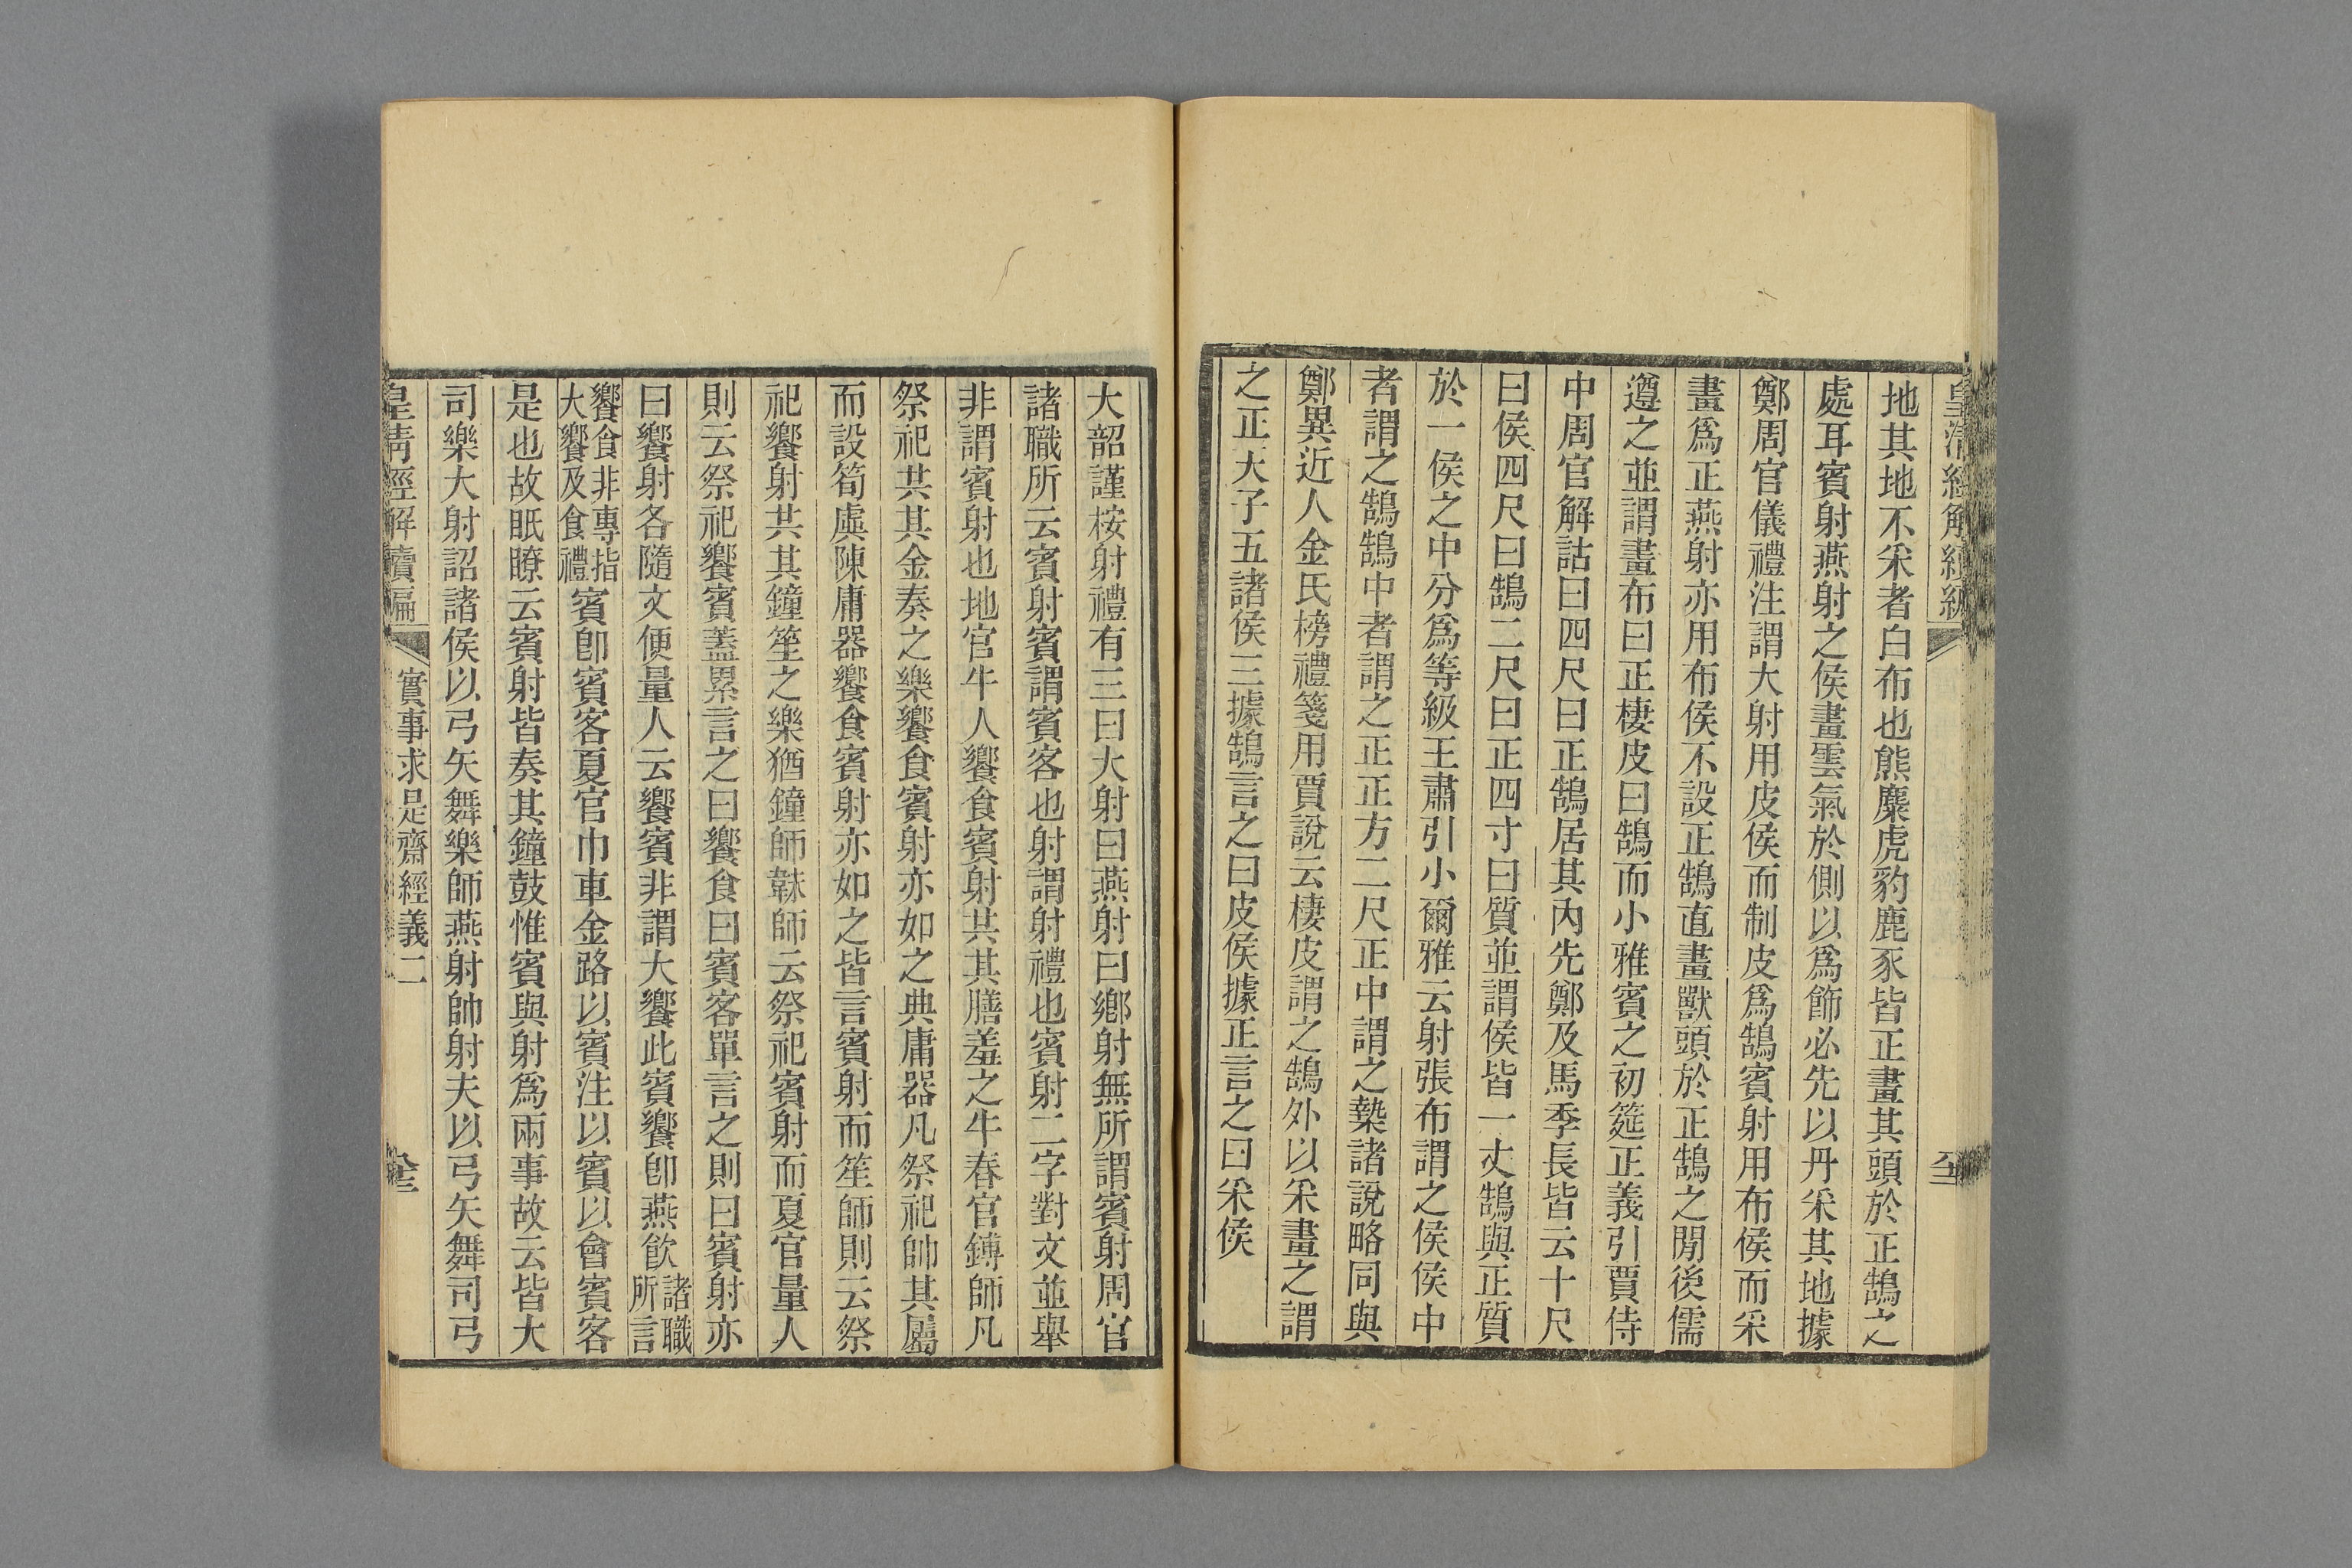 皇清經解續編
地其地不采者白布也熊麋虎豹鹿豕皆正畫其頭於正鵠之
處耳賓射燕射之侯畫雲氣於側以爲飾必先以丹采其地據
鄭周官儀禮注謂大射用皮侯而制皮爲鵠賓射用布侯而采
畫爲正燕射亦用布侯不設正鵠直畫獸頭於正鵠之閒後儒
遵之並謂畫布曰正棲皮曰鵠而小雅賓之初筵正義引賈侍
中周官解詁曰四尺曰正鵠居其內先鄭及馬季長皆云十尺
曰侯四尺曰鵠二尺曰正四寸曰質並謂侯皆一丈鵠與正質
於一侯之中分爲等級王肅引小爾雅云射張布謂之侯侯中
者謂之鵠鵠中者謂之正正方二尺正中謂之槷諸說略同與
鄭異近人金氏榜禮箋用賈說云棲皮謂之鵠外以采畫之謂
之正天子五諸侯三據鵠言之曰皮侯據正言之曰采侯
大韶謹桉射禮有三曰大射曰燕射曰鄉射無所謂賓射周官
諸職所云賓射賓謂賓客也射謂射禮也賓射二字對文並舉
非謂賓射也地官牛人饗食賓射共其膳羞之牛春官鎛師凡
祭祀共其金奏之樂饗食賓射亦如之典庸器凡祭祀帥其屬
而設筍虡陳庸器饗食賓射亦如之皆言賓射而笙師則云祭
祀饗射共其鐘笙之樂猶鐘師韎師云祭祀賓射而夏官量人
則云祭祀饗賓蓋累言之曰饗食曰賓客單言之則曰賓射亦
曰饗射各隨文便量人云饗賓非謂大饗此賓饗卽燕飮諸職所言
饗食非專指大饗及食禮賓卽賓客夏官巾車金路以賓注以賓以會賓客
是也故眂瞭云賓射皆奏其鐘鼓惟賓與射爲兩事故云皆大
司樂大射詔諸侯以弓矢舞樂師燕射帥射夫以弓矢舞司弓
皇清經解續編 實事求是齋經義二